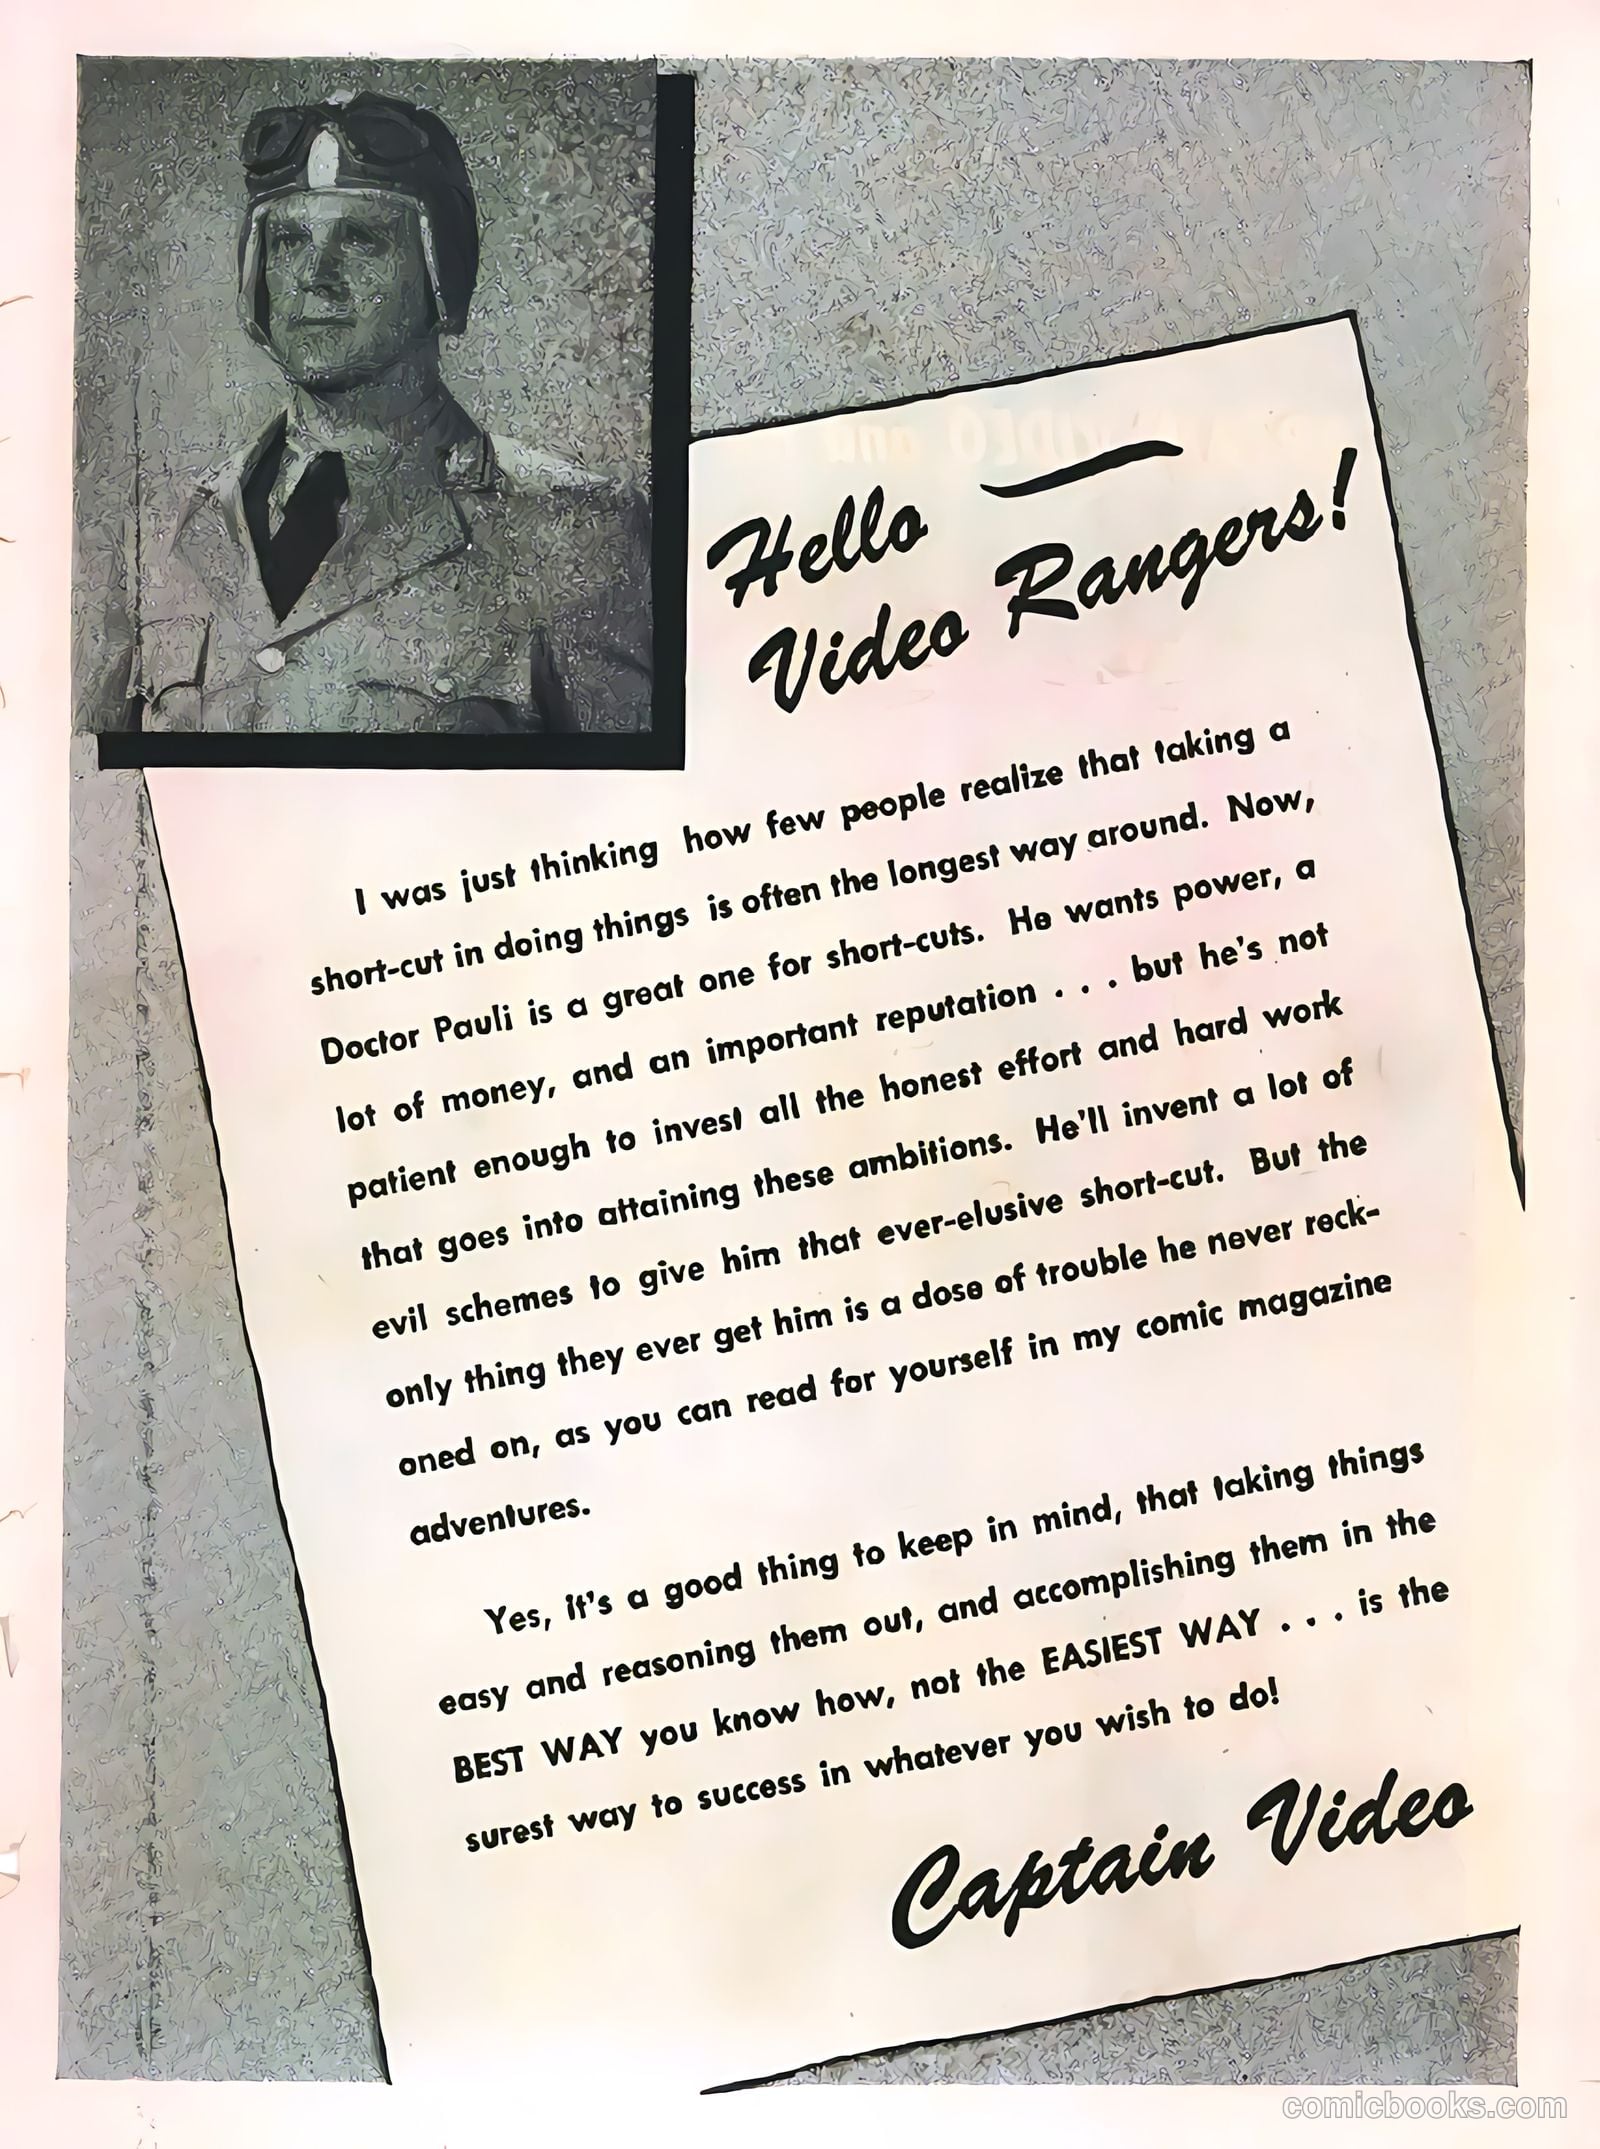 Hello —
Video Rangers!
I was just thinking how few people realize that taking a
short-cut in doing things is often the longest way around. Now,
Doctor Pauli is a great one for short-cuts. He wants power, a
lot of money, and an important reputation . . . but he's not
patient enough to invest all the honest effort and hard work
that goes into attaining these ambitions. He'll invent a lot of
evil schemes to give him that ever-elusive short-cut. But the
only thing they ever get him is a dose of trouble he never reck-
oned on, as you can read for yourself in my comic magazine
adventures.
Yes, it's a good thing to keep in mind, that taking things
easy and reasoning them out, and accomplishing them in the
BEST WAY you know how, not the EASIEST WAY . . . is the
surest way to success in whatever you wish to do!
Captain Video
comicbooks.com